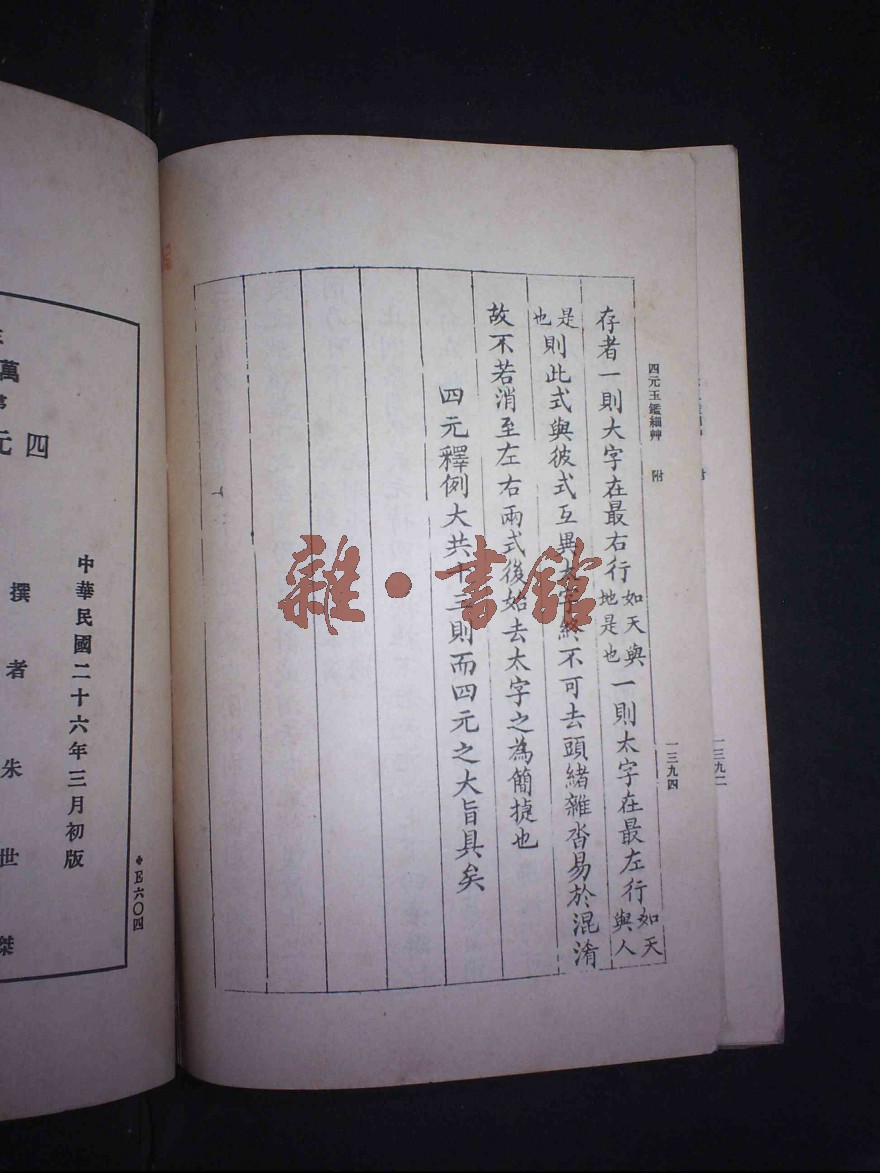 四元玉鑑細艸 附
一三九四
一三九二
存者一則太字在最右行如天與地是也一則太字在最左行如天與人
是也則此式與彼式互異太字終不可去頭緒雜沓易於混淆
故不若消至左右兩式後始去太字之為簡捷也
四元釋例大共十三則而四元之大旨具矣
雜·書館
萬
四元
中華民國二十六年三月初版
撰者朱世傑
E六〇四